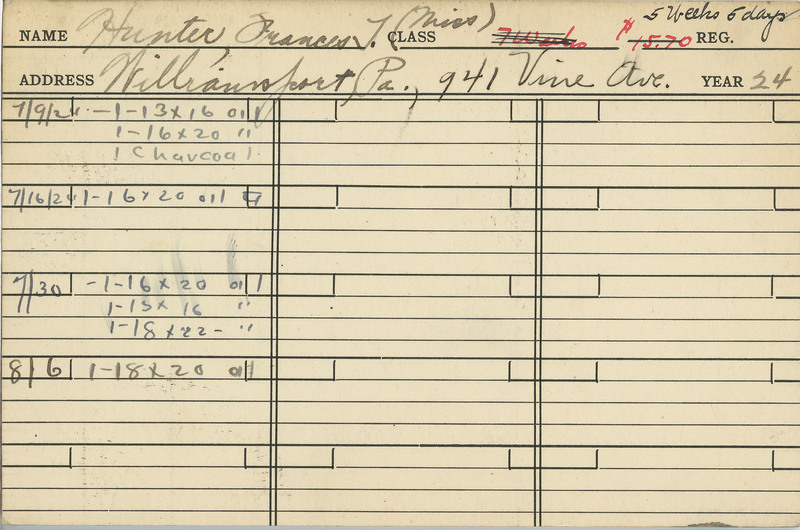 5 Weeks 5 days
NAME Hunter, Frances T. (Miss) CLASS 7 Weeks $15.70 REG.
ADDRESS Williamsport, Pa., 941 Vine Ave. YEAR 24
7/9/24 - 1-13 x 16 oil
1-16 x 20 "
1 Charcoal
7/16/24 1-16 x 20 oil
7/30 -1-16 x 20 oil
1-13 x 16 "
1-18 x 22 - "
8/6 1-18 x 20 oil